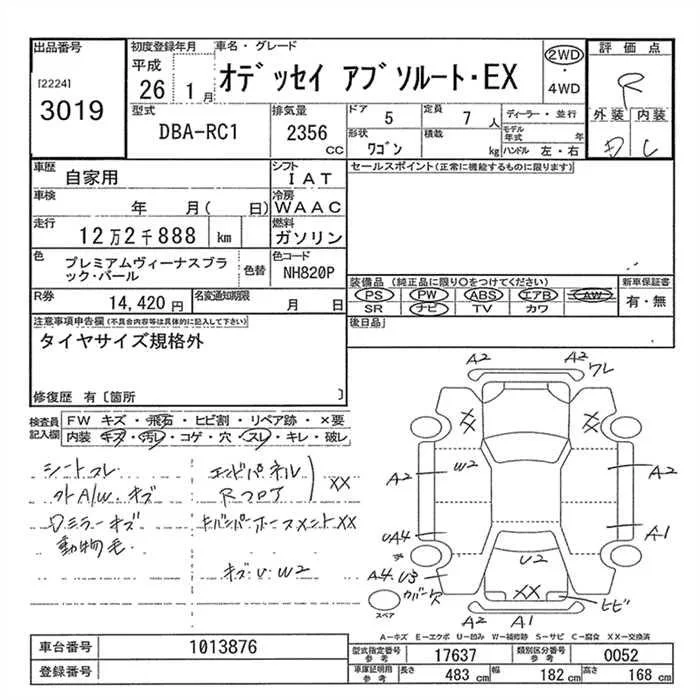 出品番号
[2224]
3019
初度登録年月
平成
26 1月
車名・グレード
オデッセイ アブソルート・EX
2WD
・
4WD
評価点
R
外装 内装
D C
型式
DBA-RC1
排気量
2356
CC
ドア 5
定員 7 人
形状 ワゴン
積載 kg
ディーラー・並行
モデル年式 年
ハンドル 左・右
車歴 自家用
シフト IAT
車検 年 月( 日)
冷房 WAAC
走行 12万2千888 km
燃料 ガソリン
色 プレミアムヴィーナスブラック・パール
色替
色コード NH820P
R券 14,420円
名変通知期限 月 日
セールスポイント(正常に機能するものに限ります)
装備品 (純正品に限り○をつけてください)
PS PW ABS エアB AW
SR ナビ TV カワ
新車保証書
有・無
後日品
注意事項申告欄(不具合内容等は具体的に記入して下さい)
タイヤサイズ規格外
修復歴 有〔箇所 〕
検査員記入欄
FW キズ・飛石・ヒビ割・リペア跡・×要
内装・キズ・汚レ・コゲ・穴・スレ・キレ・破レ
シートスレ
外A/W.キズ
Dミラーキズ
動物毛
エンドパネル
Rフロア
XX
キズ.U.W2
A2
A2
ワレ
XX
XX
W2
A2
A2
UA4
A1
U2
A4.U3
カバー欠
XX
ヒビ
スペア
A2 A1
A-キズ E-エクボ U-凹み W-補修跡 S-サビ C-腐食 XX-交換済
車台番号 1013876
登録番号
型式指定番号 参考 17637
類別区分番号 参考 0052
車庫証明用 参考 長さ 483cm 幅 182cm 高さ 168cm